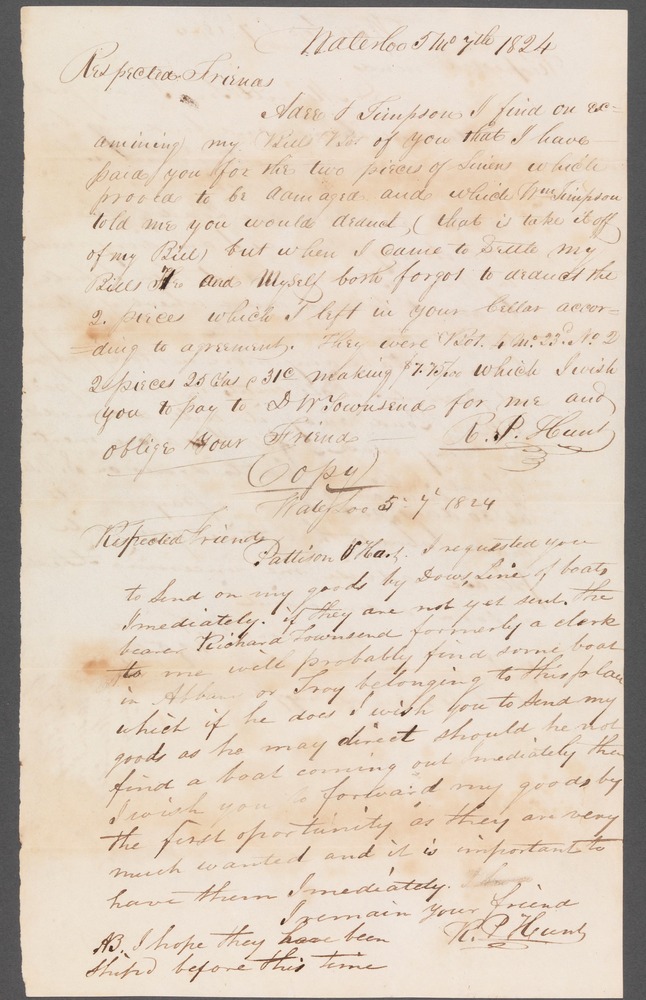 Waterloo 5 mo 7th 1824
Respected Friends
& Timpson I find on ex=
amining my Bills Bot of you that I have
paid you for the two pieces of Linens which
proved to be damaged and which Wm Timpson
told me you would deduct (that is take it off
of my Bill) but when I came to Settle my
Bills He and Myself both forgot to deduct the
2. pieces which I left in your Cellar accor=
=ding to agreement. They were Bot. 4 mo. 23d. No 2
2 pieces 25 Ells @ 31c making $7.75/100 which I wish
you to pay to D W Townsend for me and
oblige Your Friend R. P. Hunt
(Copy)
Waterloo 5. 7 1824
Respected Friends
Pattison & I requested you
to Send on my goods by Dows Line of boats
Imediately. if they are not yet sent. The
bearer Richard Townsend formerly a clerk
to me will probably find some boat
in Albany or Troy belonging to this place
which if he does i wish you to Send my
goods as he may direct should he not
find a boat coming out imediately then
I wish you to forward my goods by
the first oportunity as they are very
much wanted and it is important to
have them Imediately.
I remain your friend
R. P Hunt
NB. I hope they have been
Ship'd before this time